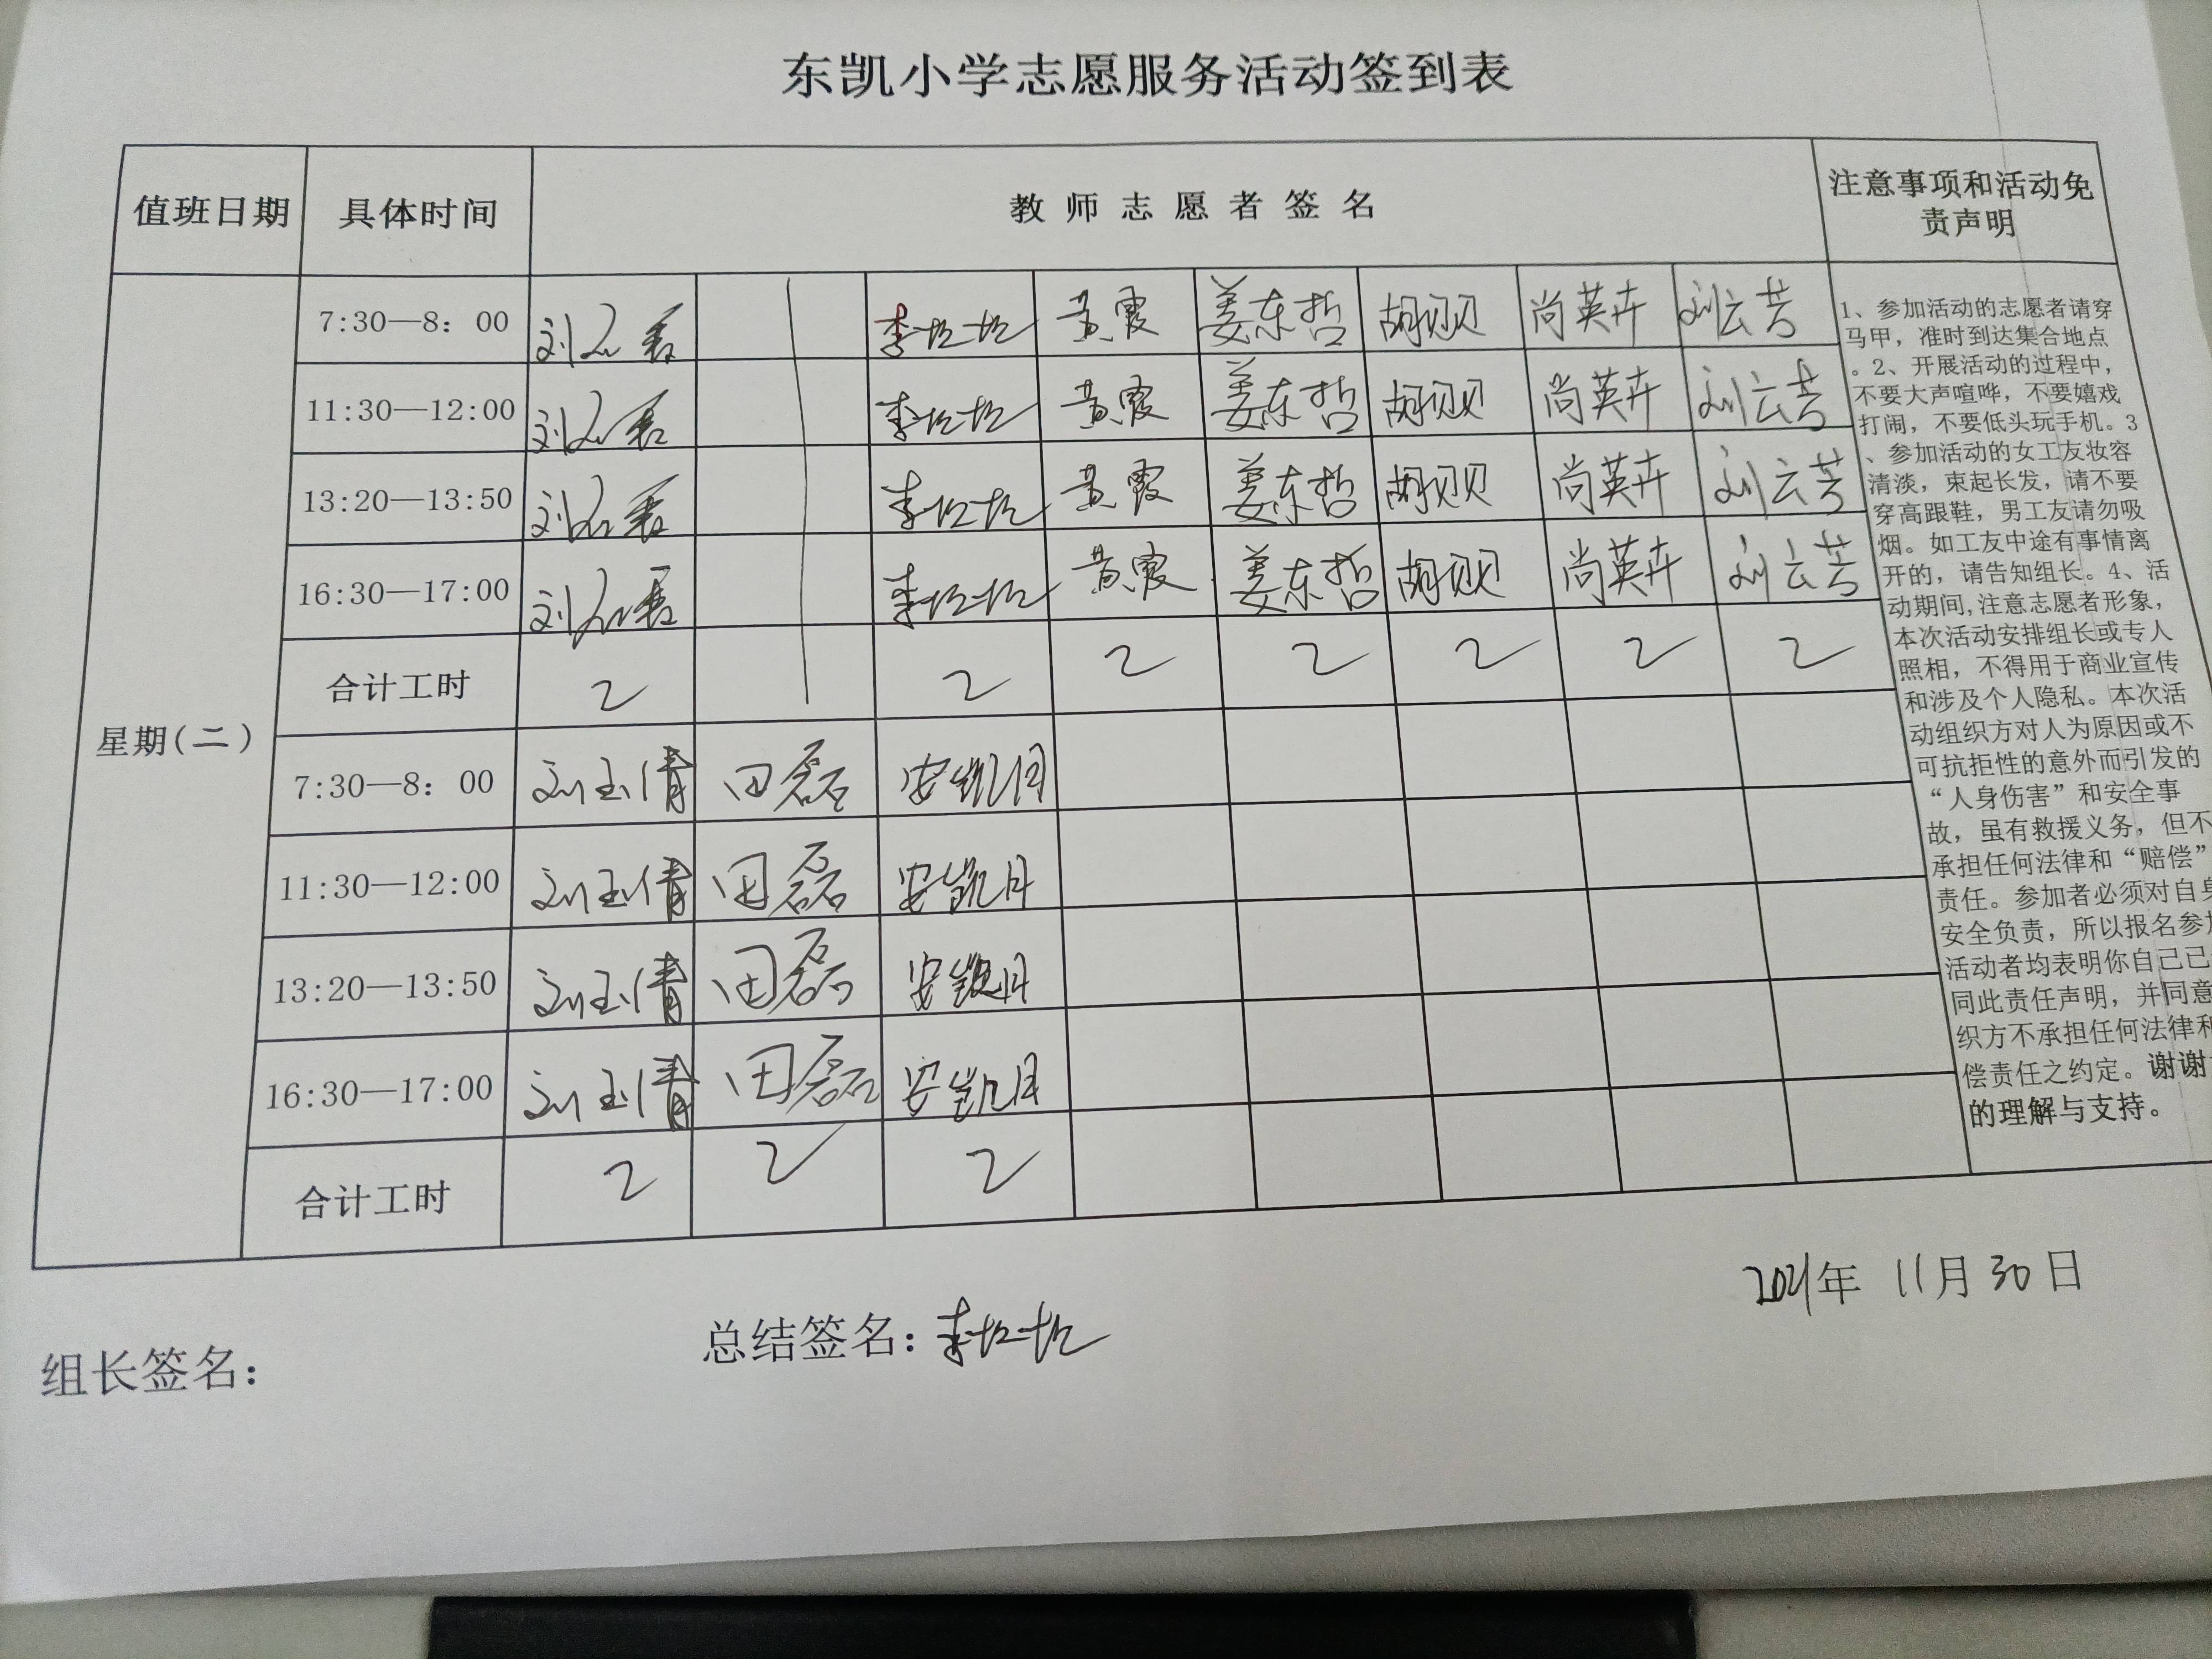 东凯小学志愿服务活动签到表
值班日期 具体时间 教师志愿者签名 注意事项和活动免
责声明
星期(二)
7:30—8：00 黄霞 姜东哲 胡贝贝 尚英卉 刘云芳
11:30—12:00 黄霞 姜东哲 胡贝贝 尚英卉 刘云芳
13:20—13:50 黄霞 姜东哲 胡贝贝 尚英卉 刘云芳
16:30—17:00 黄霞 姜东哲 胡贝贝 尚英卉 刘云芳
合计工时 2 2 2 2 2 2 2
7:30—8：00 刘玉倩 田磊 安凯月
11:30—12:00 刘玉倩 田磊 安凯月
13:20—13:50 刘玉倩 田磊 安凯月
16:30—17:00 刘玉倩 田磊 安凯月
合计工时 2 2 2
1、参加活动的志愿者请穿
马甲，准时到达集合地点
。2、开展活动的过程中，
不要大声喧哗，不要嬉戏
打闹，不要低头玩手机。3
、参加活动的女工友妆容
清淡，束起长发，请不要
穿高跟鞋，男工友请勿吸
烟。如工友中途有事情离
开的，请告知组长。4、活
动期间,注意志愿者形象，
本次活动安排组长或专人
照相，不得用于商业宣传
和涉及个人隐私。本次活
动组织方对人为原因或不
可抗拒性的意外而引发的
“人身伤害”和安全事
故，虽有救援义务，但不
承担任何法律和“赔偿”
责任。参加者必须对自身
安全负责，所以报名参加
活动者均表明你自己已
同此责任声明，并同意
织方不承担任何法律和
偿责任之约定。谢谢
的理解与支持。
2021年 11月 30日
总结签名：
组长签名：